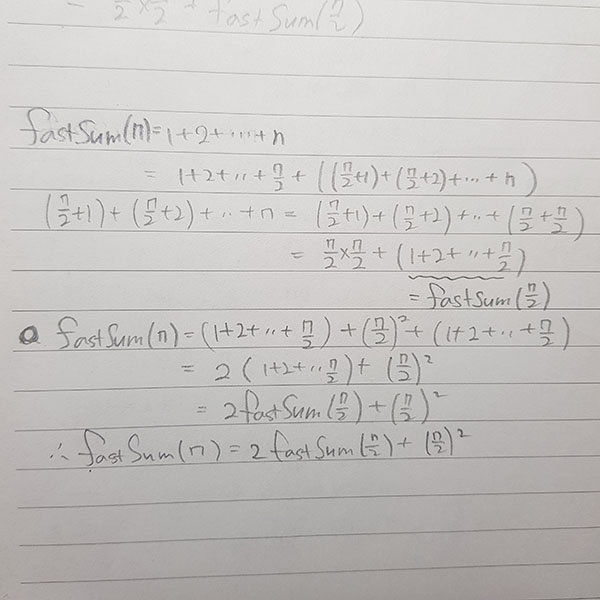 n/2 × n/2 + fastSum(n/2)
fastSum(n) = 1+2+...+n
= 1+2+..+n/2 + ((n/2+1)+(n/2+2)+...+n)
(n/2+1)+(n/2+2)+..+n = (n/2+1)+(n/2+2)+..+(n/2+n/2)
= n/2×n/2 + (1+2+..+n/2)
= fastSum(n/2)
fastSum(n) = (1+2+..+n/2)+(n/2)²+(1+2+..+n/2)
= 2(1+2+..n/2)+(n/2)²
= 2fastSum(n/2)+(n/2)²
∴ fastSum(n) = 2fastSum(n/2)+(n/2)²